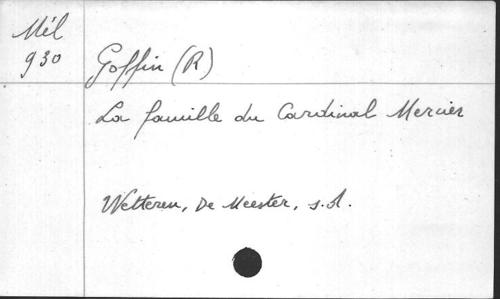 Mél
930
Goffin (R)
La famille du Cardinal Mercier
Wetteren, De Meester, s.d.